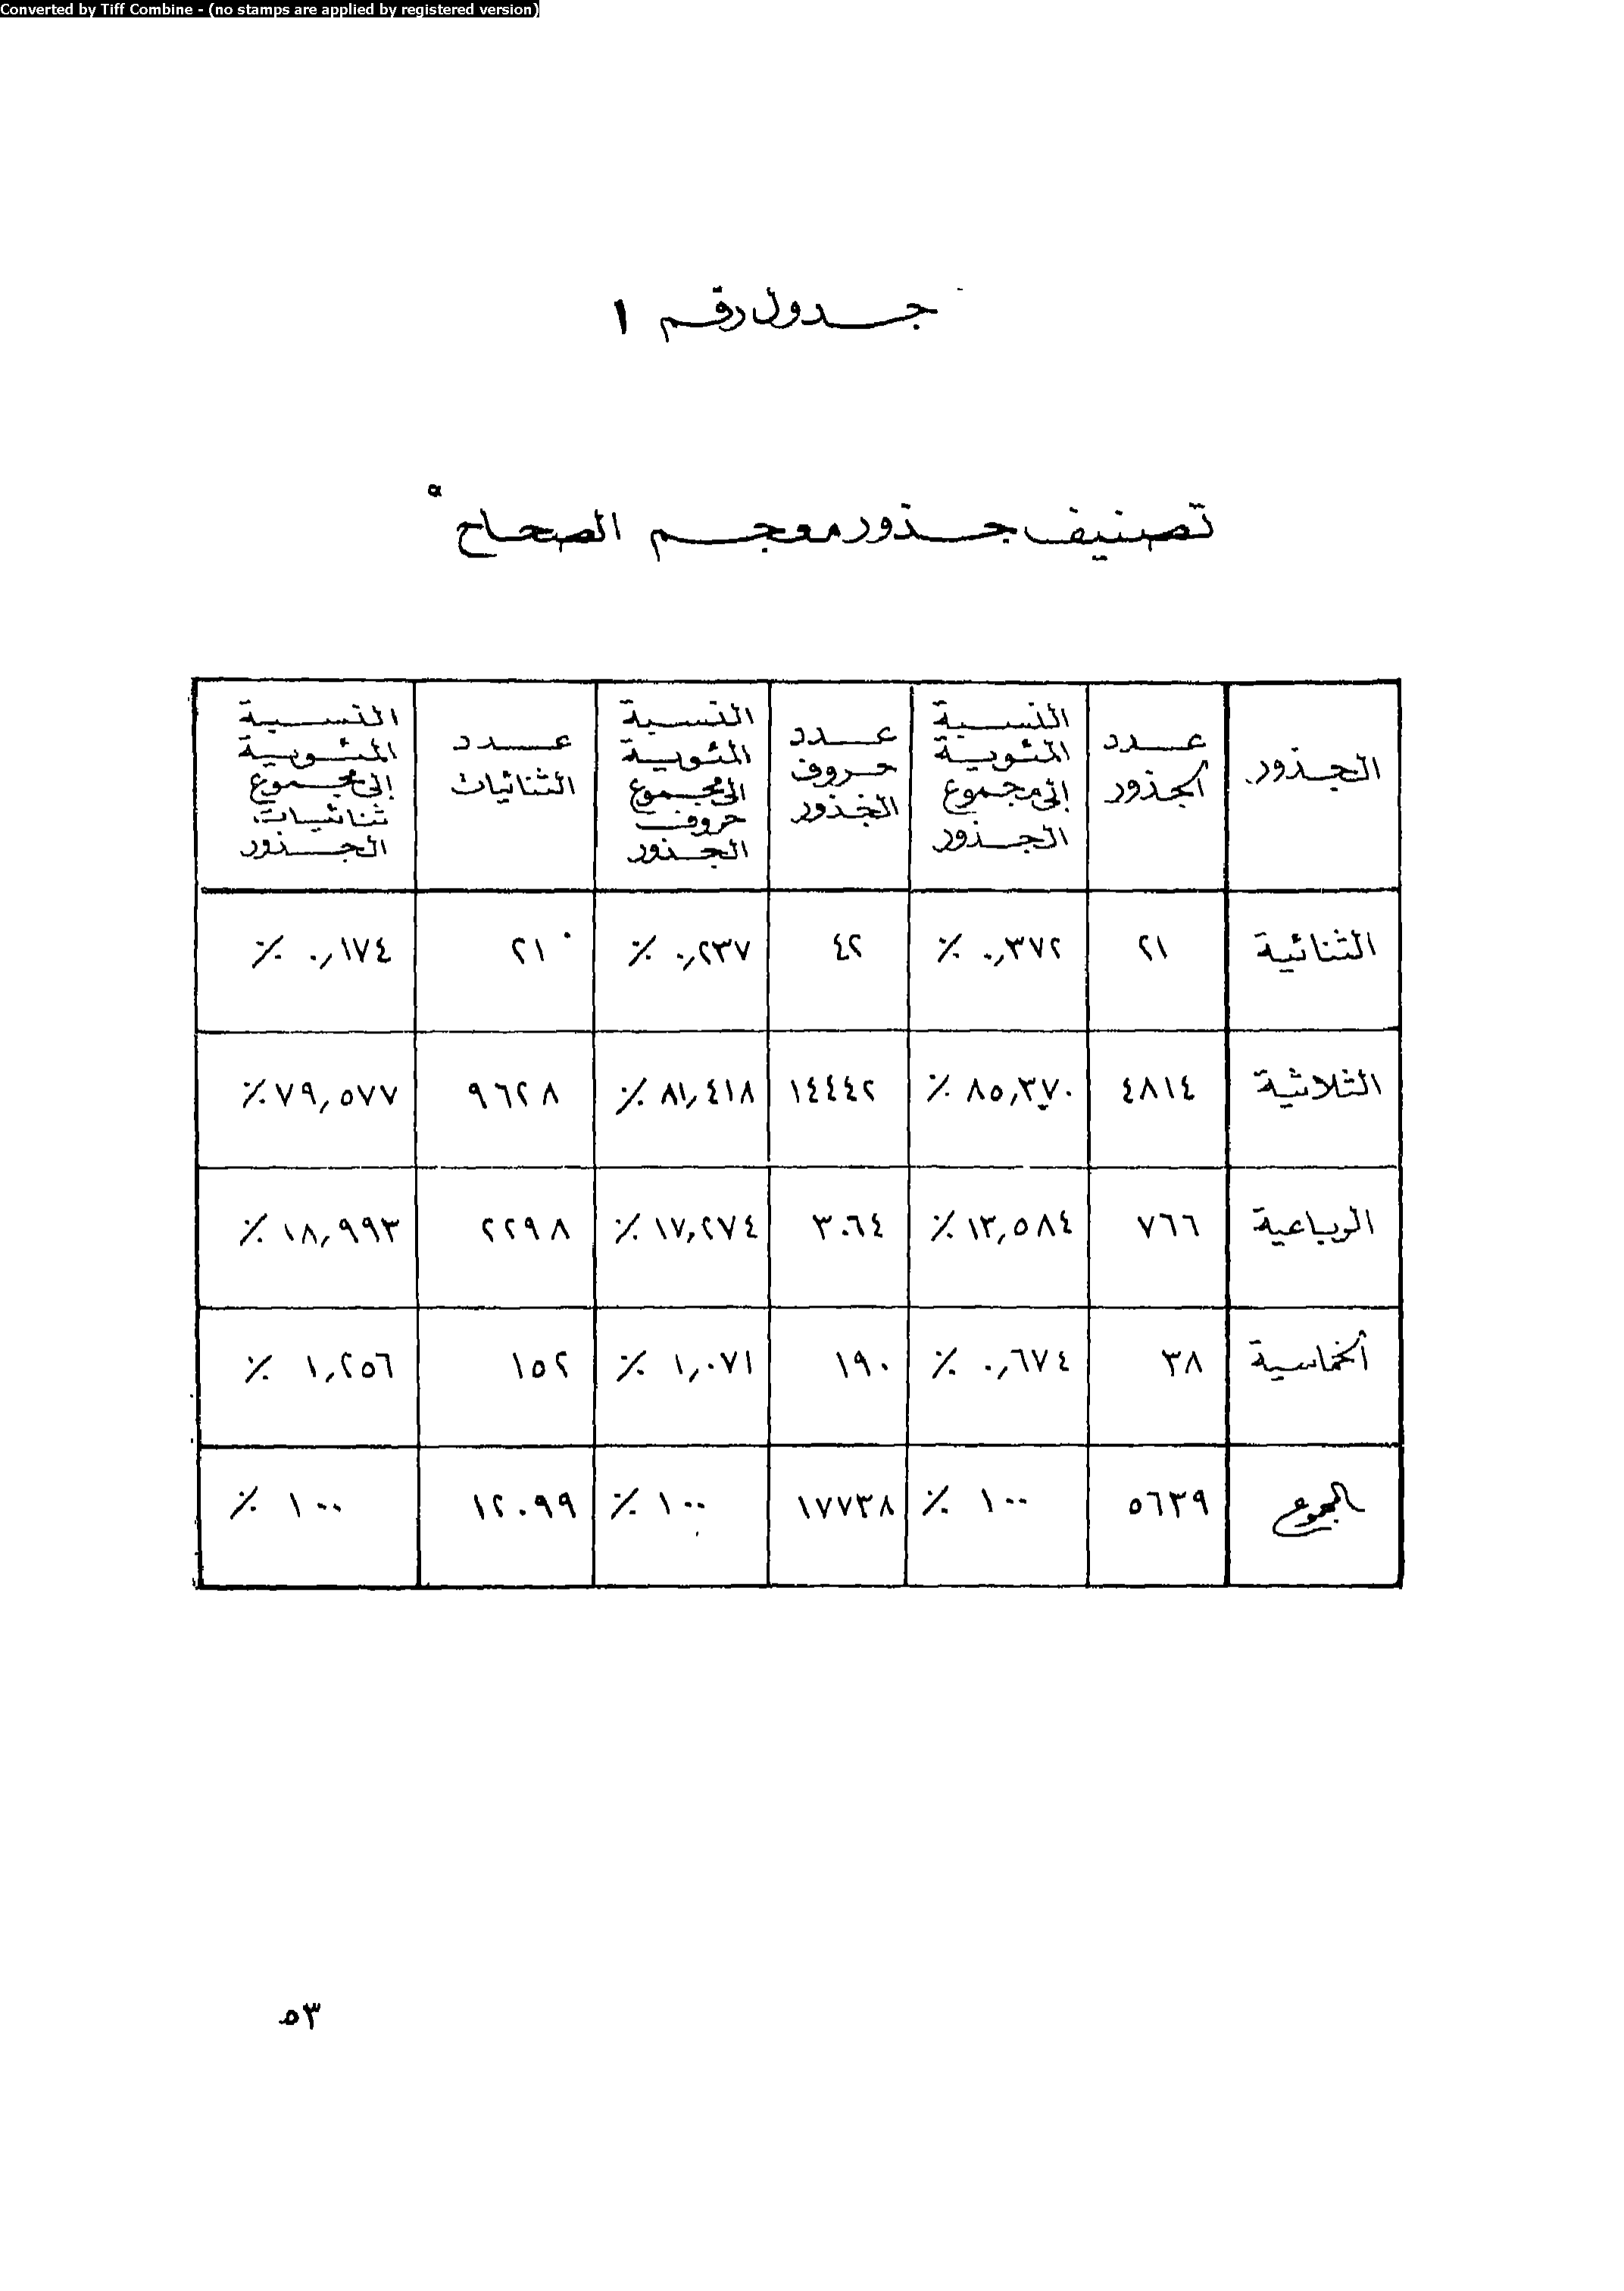 Converted by Tiff Combine - (no stamps are applied by registered version)
جدول رقم ١
تصنيف جذور معجم الصحاح
الجذور | عدد الجذور | النسبة المئوية إلى مجموع الجذور | عدد حروف الجذور | النسبة المئوية إلى مجموع حروف الجذور | عدد الثنائيات | النسبة المئوية إلى مجموع ثنائيات الجذور
الثنائية | ٢١ | ٠,٣٧٢ ٪ | ٤٢ | ٠,٢٣٧ ٪ | ٢١ | ٠,١٧٤ ٪
الثلاثية | ٤٨١٤ | ٨٥,٣٧٠ ٪ | ١٤٤٤٢ | ٨١,٤١٨ ٪ | ٩٦٢٨ | ٧٩,٥٧٧ ٪
الرباعية | ٧٦٦ | ١٣,٥٨٤ ٪ | ٣٠٦٤ | ١٧,٢٧٤ ٪ | ٢٢٩٨ | ١٨,٩٩٣ ٪
الخماسية | ٣٨ | ٠,٦٧٤ ٪ | ١٩٠ | ١,٠٧١ ٪ | ١٥٢ | ١,٢٥٦ ٪
المجموع | ٥٦٣٩ | ١٠٠ ٪ | ١٧٧٣٨ | ١٠٠ ٪ | ١٢٠٩٩ | ١٠٠ ٪
٥٣